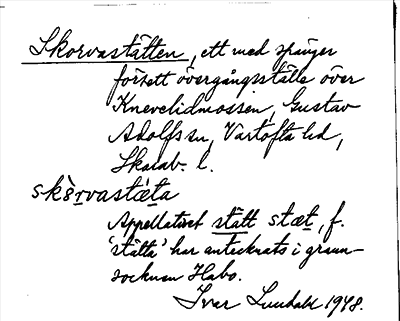 Skorvastätten, ett med spänger
försett övergångsställe över
Knevelidmossen, Gustav
Adolfs sn, Vartofta hd,
Skarab. l.
skørvastæta
Appellativet stätt stæt, f.
'stätta' har antecknats i grann-
socknen Habo.
Ivar Lundahl 1948.